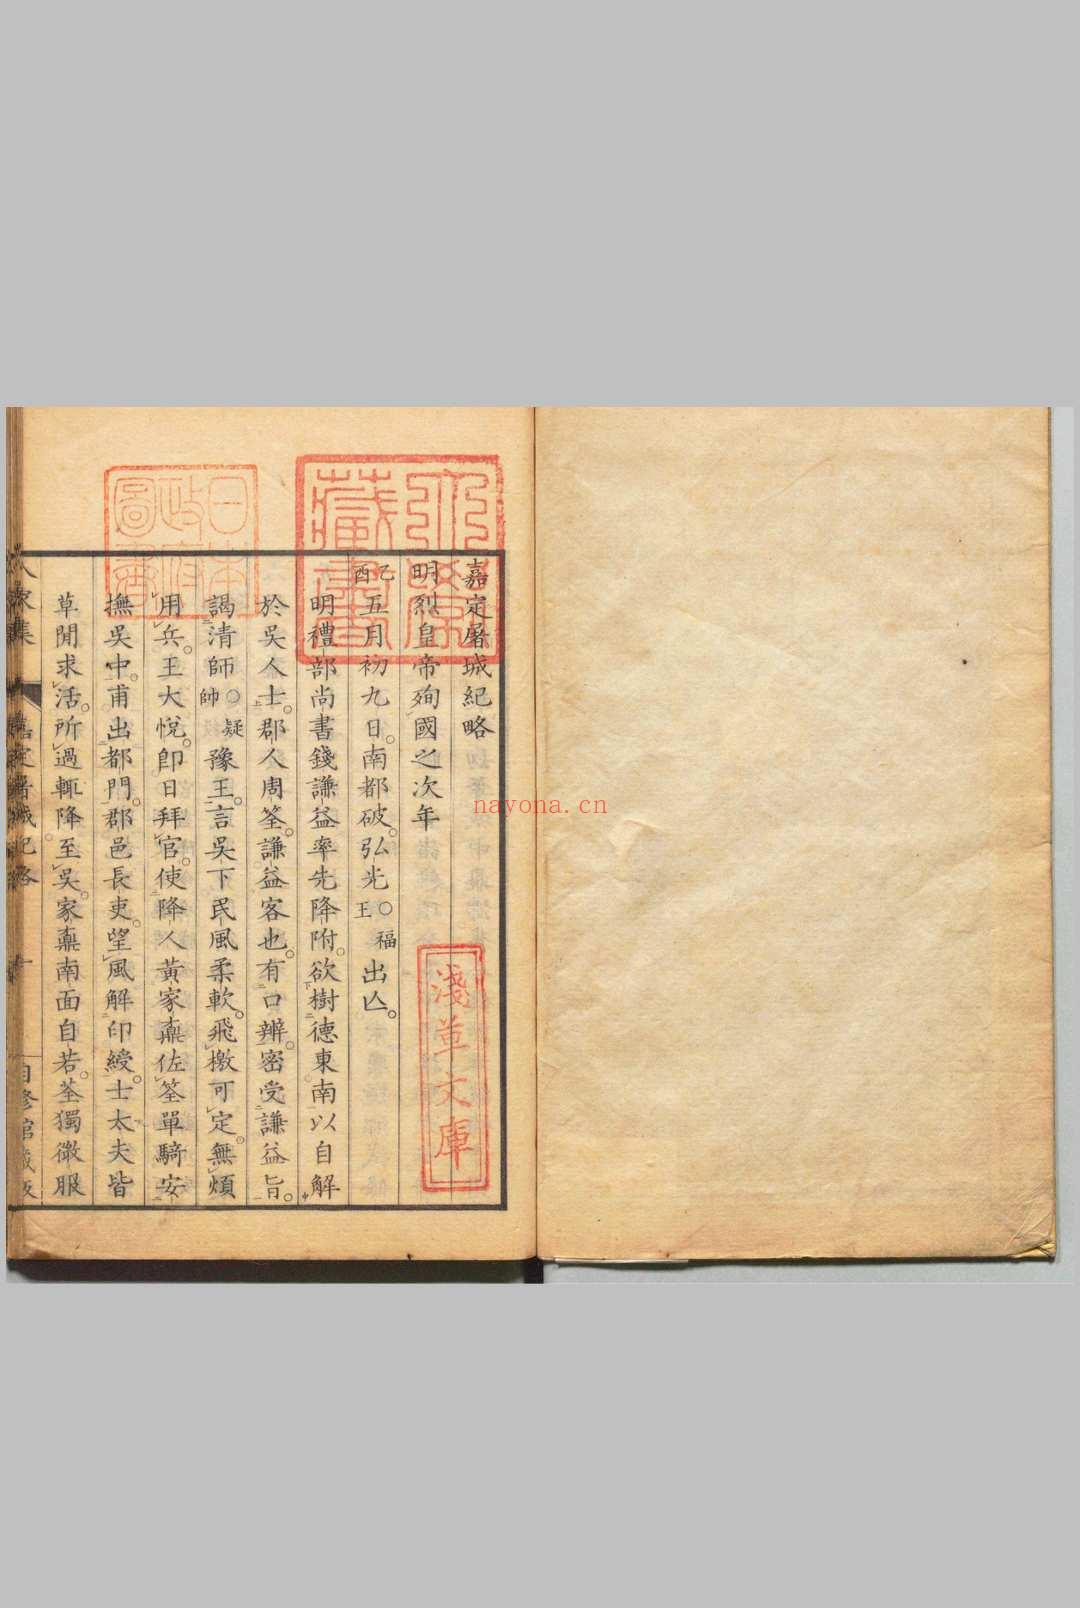 嘉定屠城紀略
明烈皇帝殉國之次年
乙酉五月初九日。南都破。弘光○福王出亾。
明禮部尚書錢謙益率先降附。欲樹德東南以自解
於吳人士。郡人周筌。謙益客也。有口辨。密受謙益旨。
謁清師○疑帥豫王。言吳下民風柔軟。飛檄可定。無煩
用兵。王大悅。卽日拜官。使降人黃家鼒佐筌單騎安
撫吳中。甫出都門。郡邑長吏。望風解印綬。士太夫皆
草閒求活。所過輒降。至吳。家鼒南面自若。荃獨微服
嘉定屠城紀略
日本政府圖書
藏書
淺草文庫
nayona.cn